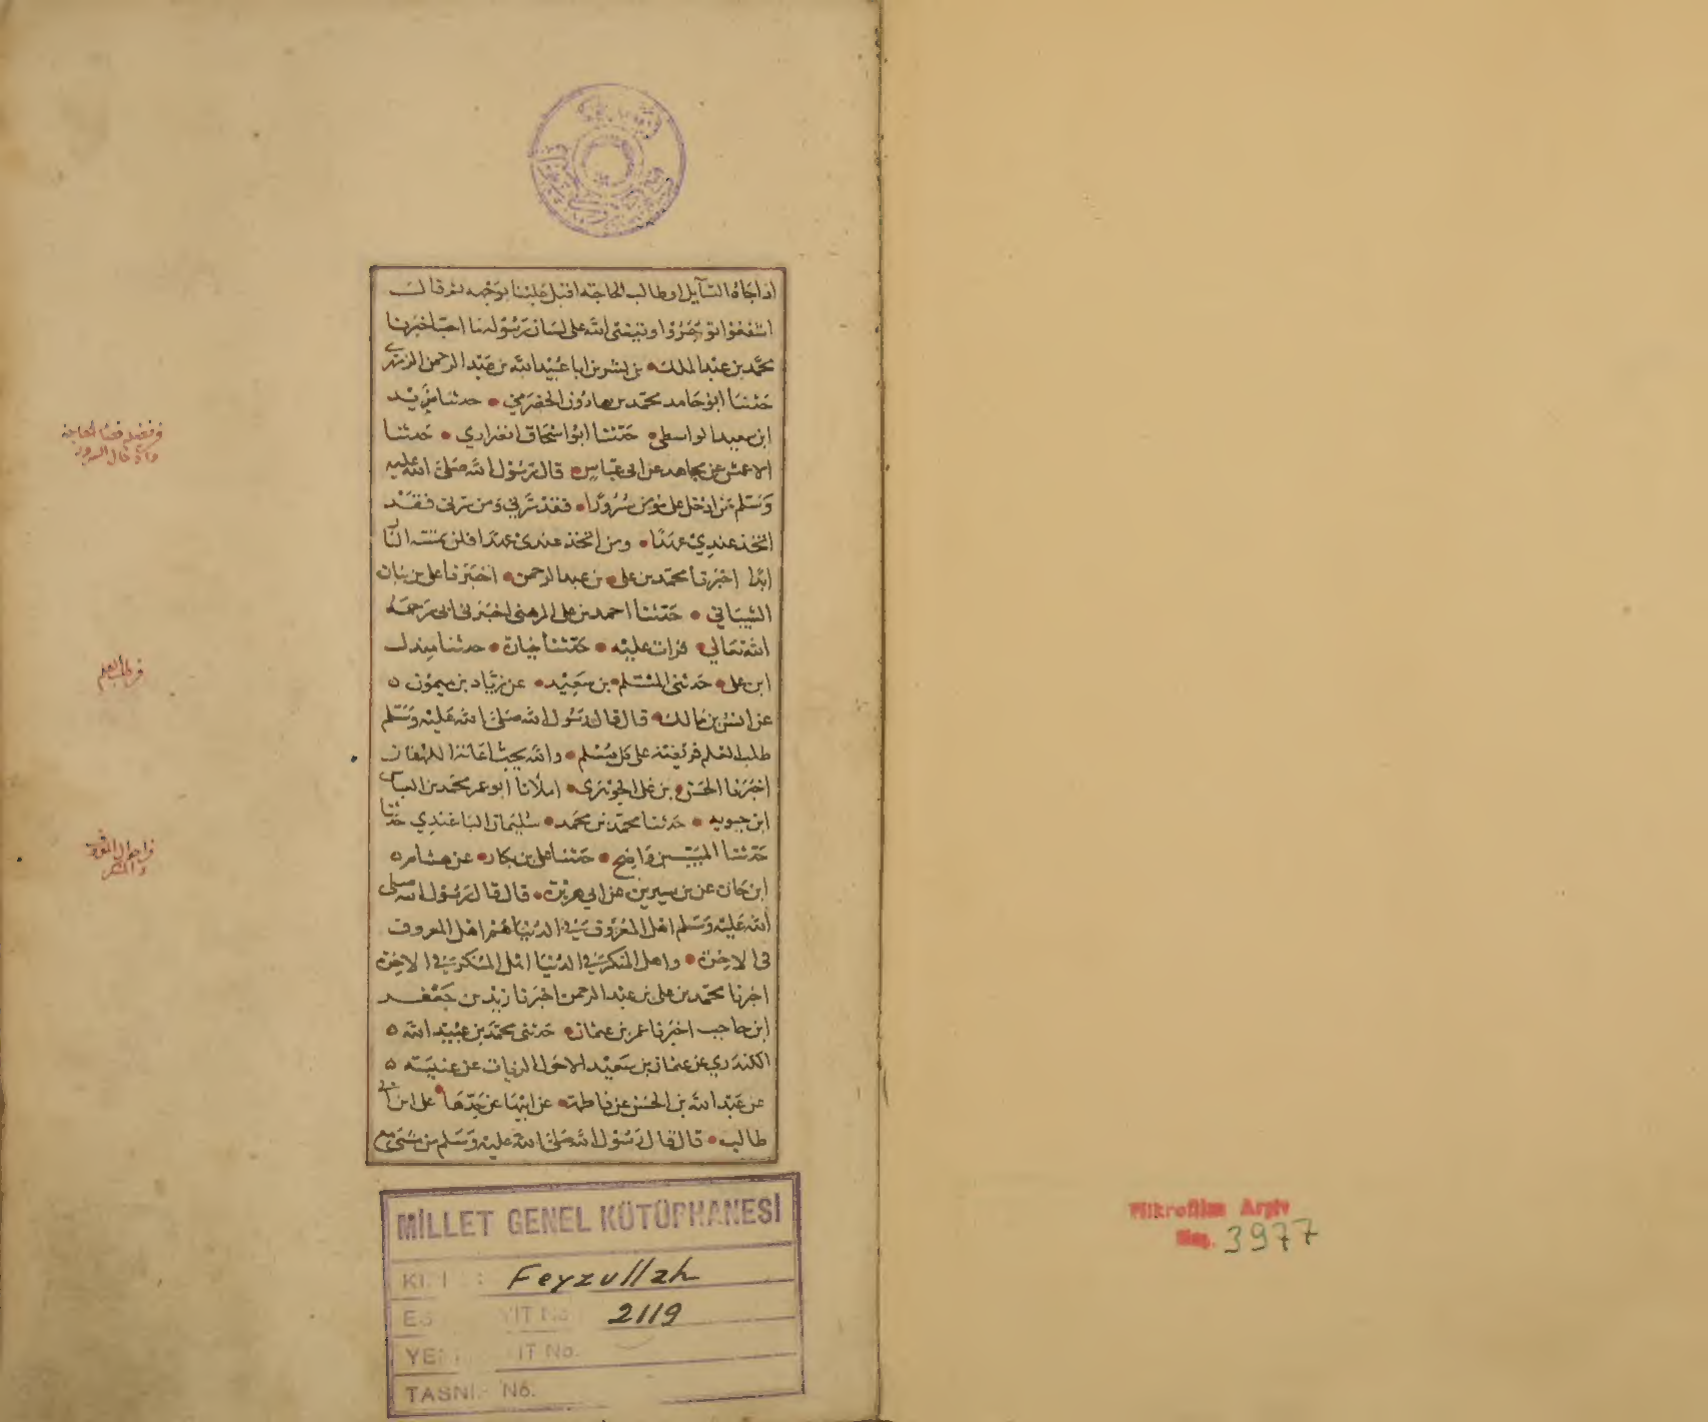 اذا جاه السايل او طالب الحاجة اقبل علينا بوجهه ثم قال
اشفعوا توجروا ويقضي الله على لسان رسوله ما احب اخبرنا
محمد بن عبد الملك بن بشران ابا عبيد الله بن عبد الرحمن الزهري
حدثنا ابو حامد محمد بن هارون الحضرمي حدثنا
ابن سعيد الواسطي حدثنا ابو اسحاق الفزاري حدثنا
الاعمش عن مجاهد عن ابن عباس قال رسول الله صلى الله عليه
وسلم من ادخل على مؤمن سرورا فقد سرني ومن سرني فقد
اتخذ عندي عهدا ومن اتخذ عندي عهدا فلن تمسه النار
ابدا اخبرنا محمد بن علي بن عبد الرحمن اخبرنا علي بن
الشيباني حدثنا احمد بن علي المرهبي اخبرني ابي رحمه
الله تعالى قرات عليه حدثنا جبارة حدثنا مندل
ابن علي حدثني المسلم بن سعيد عن زياد بن ميمون
عن انس بن مالك قال قال رسول الله صلى الله عليه وسلم
طلب العلم فريضة على كل مسلم والله يحب اغاثة اللهفان
اخبرنا الحسن بن علي الجوهري املانا ابو عمر محمد بن العباس
ابن حيويه حدثنا محمد بن محمد سليمان الباغندي حدثنا
حدثنا المسيب بن واضح حدثنا علي بن بكار عن هشام
ابن حسان عن بن سيرين عن ابي هريرة قال قال رسول الله صلى
الله عليه وسلم اهل المعروف في الدنيا هم اهل المعروف
في الاخرة واهل المنكر في الدنيا اهل المنكر في الاخرة
اخبرنا محمد بن علي بن عبد الرحمن اخبرنا زيد بن جعفر
ابن حاجب اخبرنا عمر بن عثمان حدثني محمد بن عبيد الله
الكندري عن عثمان بن سعيد الاحول الزيات عن
عن عبد الله بن الحسن عن فاطمة عن ابيها عن جدها علي ابن ابي
طالب قال قال رسول الله صلى الله عليه وسلم من مشى مع
في طلب العلم
MİLLET GENEL KÜTÜPHANESİ
Feyzullah
2119
TASNİF No.
Mikrofilm Arşiv
No. 3977